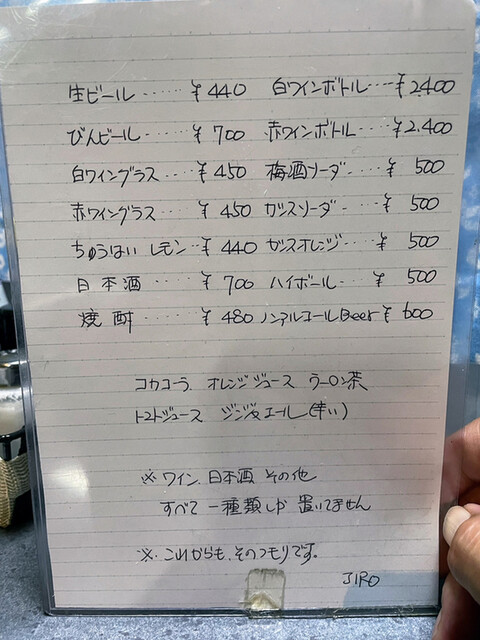 生ビール・・・・・¥440 白ワインボトル・・・¥2.400
びんビール・・・・¥700 赤ワインボトル・・・¥2.400
白ワイングラス・・・・¥450 梅酒ソーダ・・・¥500
赤ワイングラス・・・¥450 カシスソーダ・・・¥500
ちゅうはい レモン・・・¥440 カシスオレンジ・・・・¥500
日本酒・・・¥700 ハイボール・・・・¥500
焼酎・・・・¥480 ノンアルコールBeer¥600
コカコーラ、オレンジジュース ウーロン茶
トマトジュース ジンジャエール(辛い)
※ワイン、日本酒 その他
すべて 一種類しか 置いてません
※これからも、そのつもりです。
JIRO